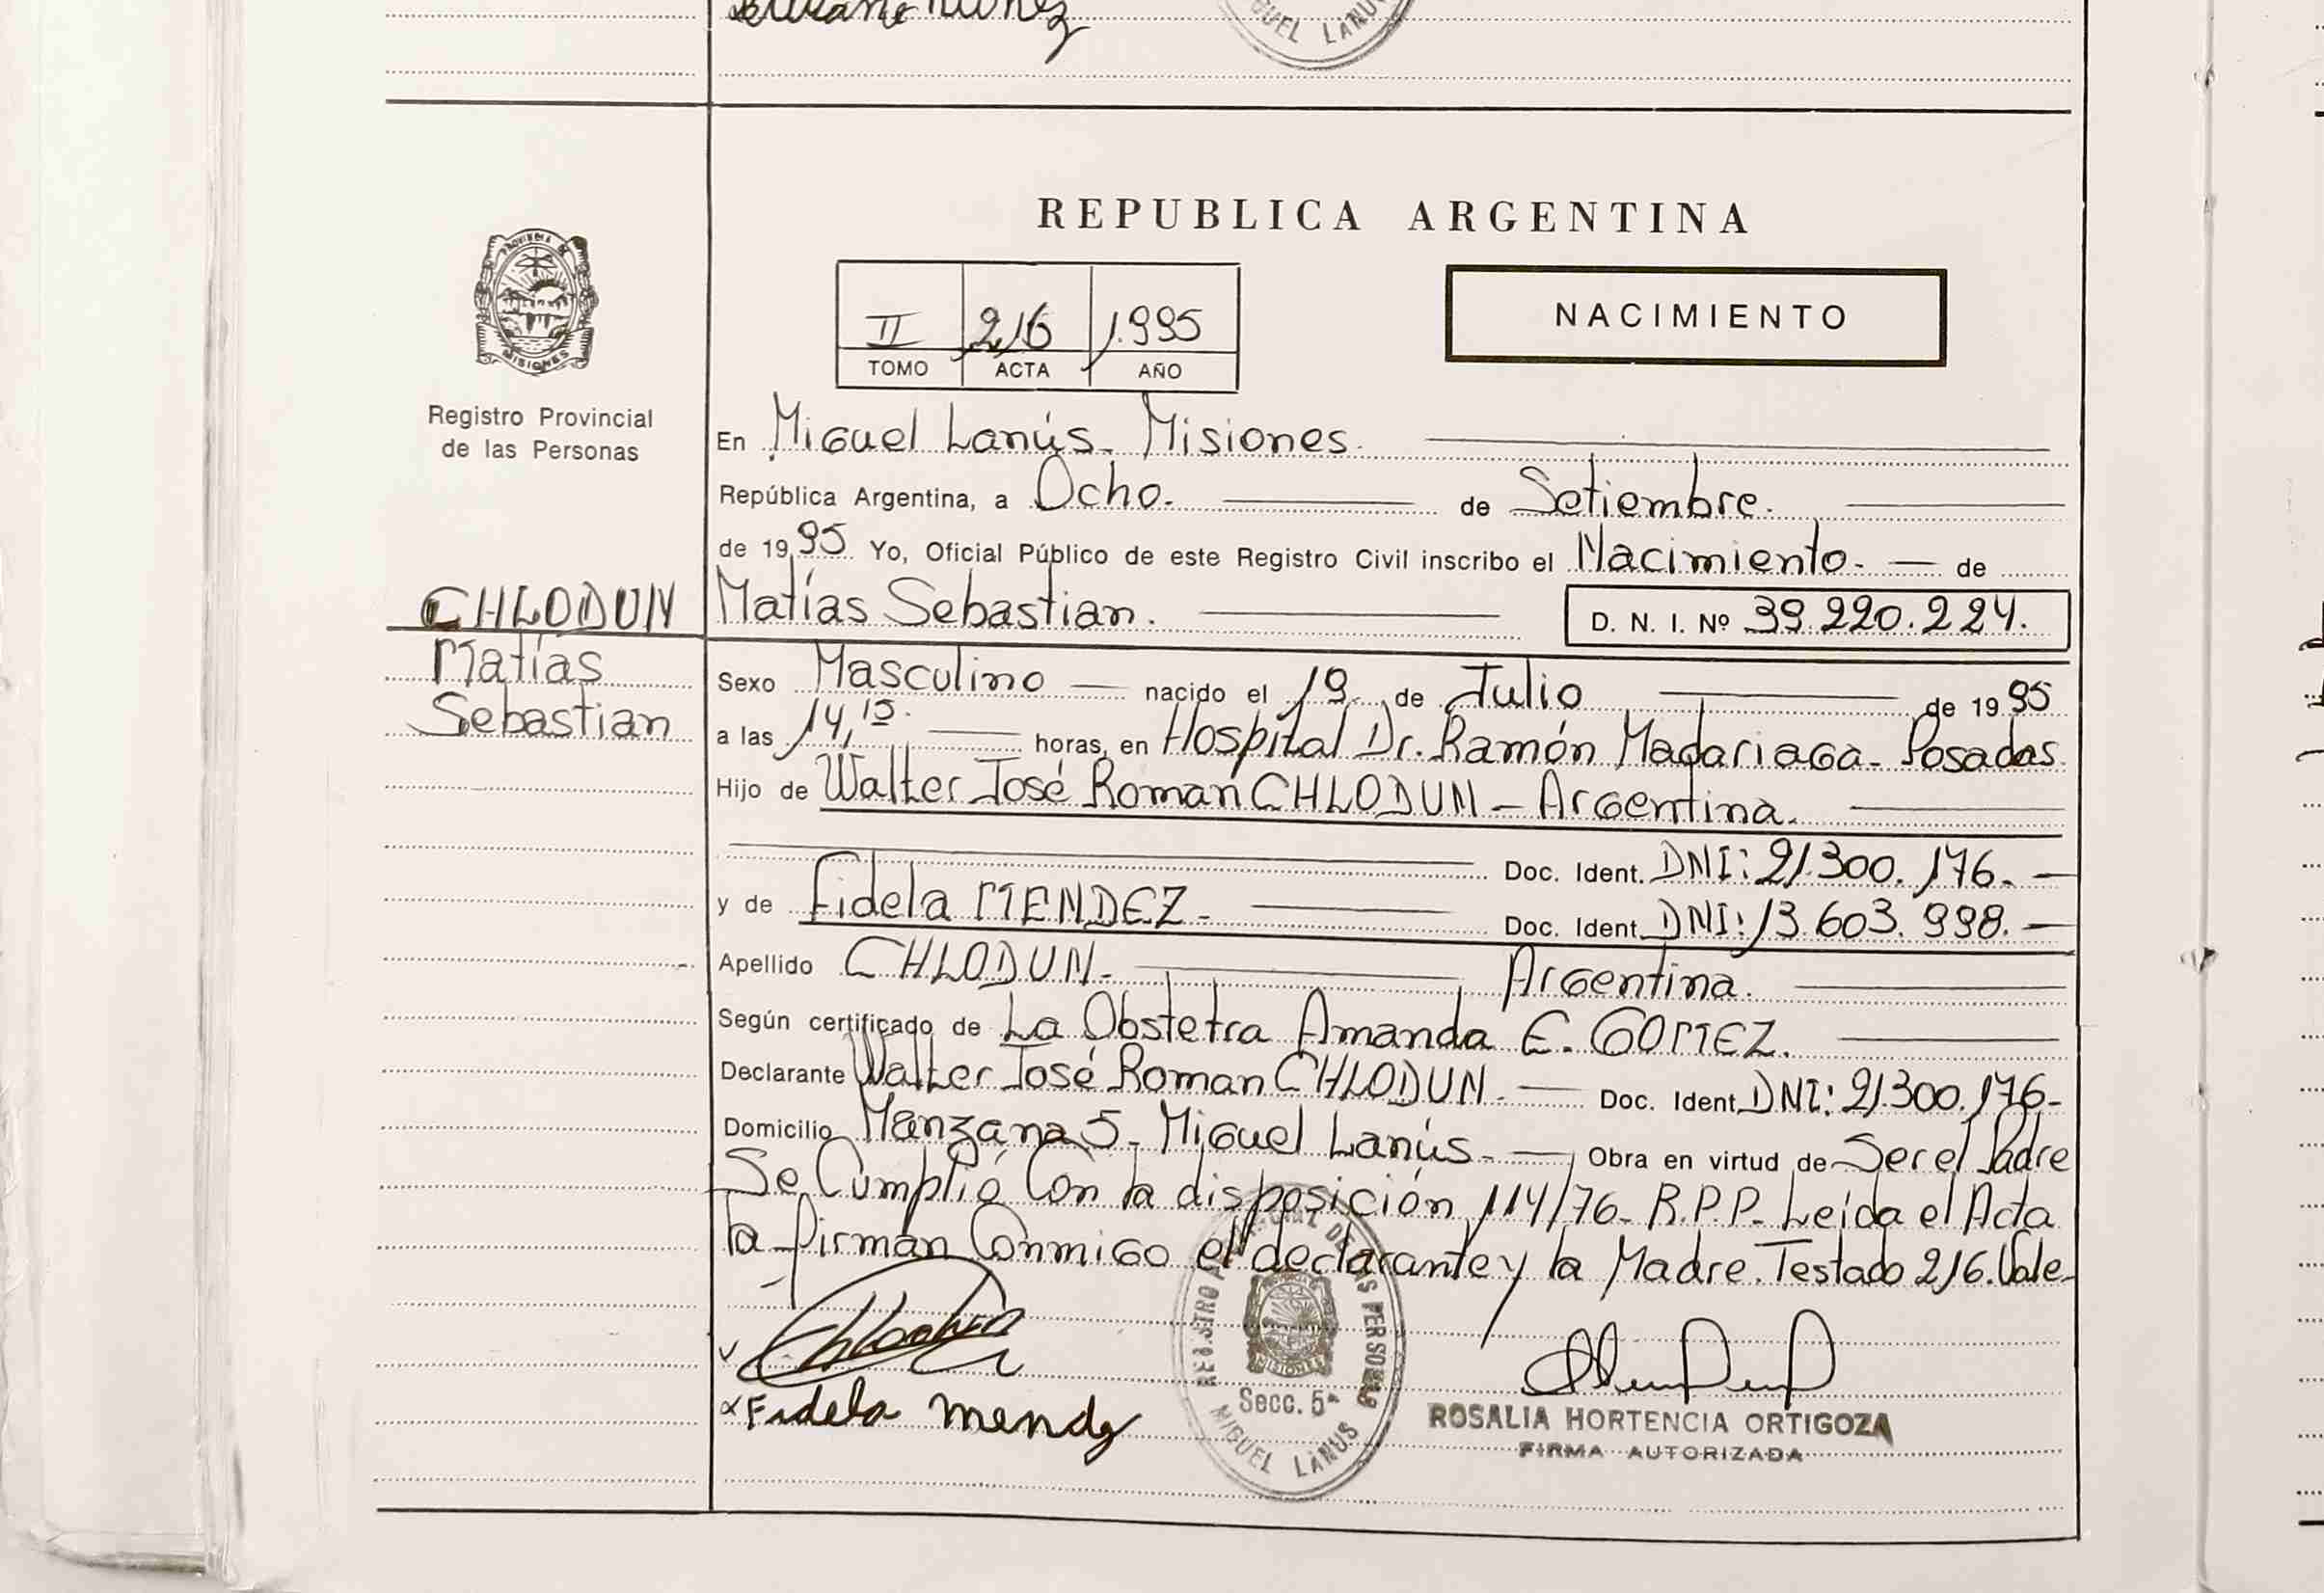 MIGUEL LANUS
REPUBLICA ARGENTINA
PROVINCIA DE
MISIONES
II 216 1.995
TOMO ACTA AÑO
NACIMIENTO
Registro Provincial
de las Personas
En Miguel Lanús- Misiones.
República Argentina, a Ocho. de Setiembre.
de 1995 Yo, Oficial Público de este Registro Civil inscribo el Nacimiento- de
CHLODUN
Matías
Sebastian
Matías Sebastian. D. N. I. Nº 39.220.224.
Sexo Masculino nacido el 19 de Julio de 1995
a las 14,15. horas, en Hospital Dr. Ramón Madariaga- Posadas
Hijo de Walter José Roman CHLODUN - Argentina.
Doc. Ident. DNI: 21.300.176.-
y de Fidela MENDEZ- Doc. Ident. DNI: 13.603.998.-
Apellido CHLODUN- Argentina.
Según certificado de La Obstetra Amanda E. GOMEZ.
Declarante Walter José Roman CHLODUN- Doc. Ident. DNI: 21.300.176-
Domicilio Manzana 5- Miguel Lanús- Obra en virtud de Ser el Padre
Se Cumplió Con la disposición 114/76- R.P.P- Leída el Acta
la firman Conmigo el declarante y la Madre. Testado 216. Vale-
REGISTRO PROVINCIAL DE LAS PERSONAS
MISIONES
Secc. 5ª
MIGUEL LANUS
Fidela Mendez
ROSALIA HORTENCIA ORTIGOZA
FIRMA AUTORIZADA